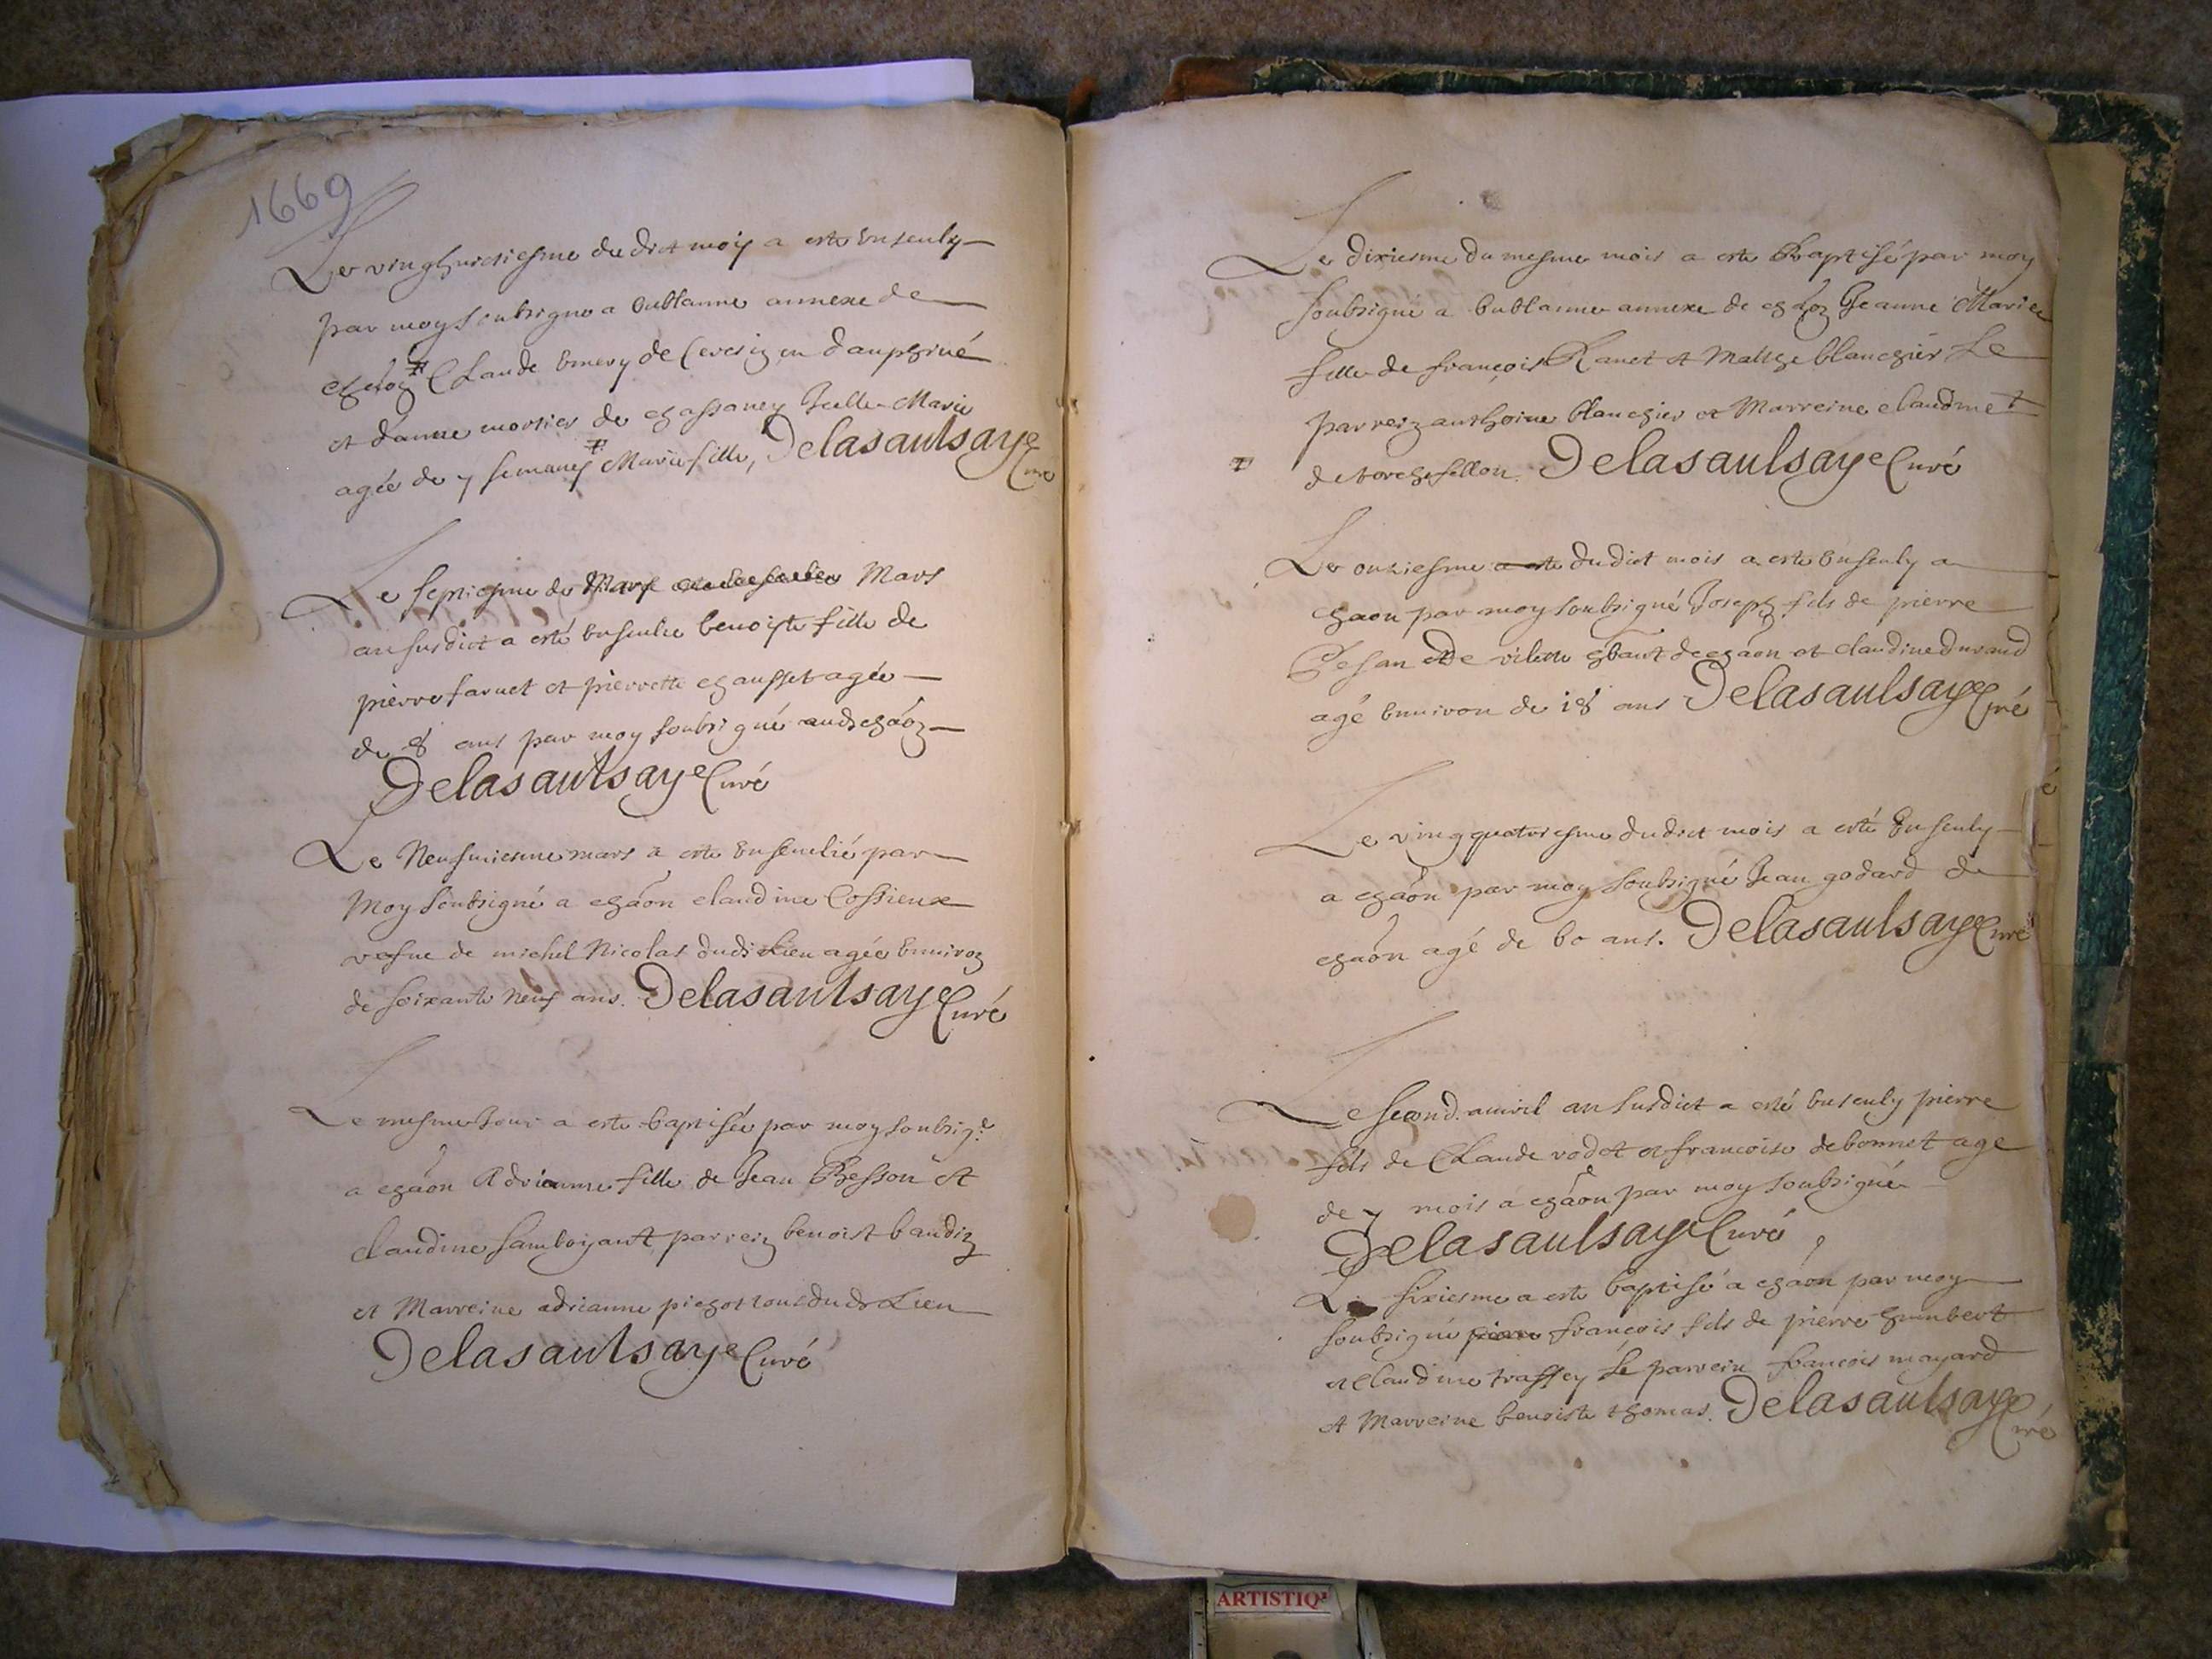 1669
Le vingthuictiesme dudict moys a esté Enseuly
par moy soubsigné a Oublanne annexe de
chaon # Claude Emery de Cevesin en dauphiné
et danne mortier de chassaney Icelle Marie
agée de 7 semaines # Marie fille, Delasaulsaye
Curé
Le septiesme de Mars Mars
an susdict a esté Enseulie benoiste fille de
pierre farnet et pierrette chausset agée
de 8 ans par moy soubsigné aud chaon
Delasaulsaye Curé
Le Neufuiesme mars a esté Enseuelié par
Moy soubsigné a chaon claudine Cossieux
vefue de michel Nicolas dud Lieu agée Enuiron
de soixante Neuf ans. Delasaulsaye Curé
Le mesme Jour a esté baptisée par moy soubsig.é
a chaon Adrianne fille de Jean Besson et
claudine Samboyant parrein benoist baudin
et Marreine adrianne pichot tous dud Lieu
Delasaulsaye Curé
Le dixiesme du mesme mois a esté Baptisé par moy
soubsigné a bublanne annexe de chaon Jeanne Marie
fille de françois Ranet et Matthe blanchier Le
parrein anthoine blanchier et Marreine claudine t
# de torchefellon. Delasaulsaye Curé
Le onziesme a esté dudict mois a esté Enseuly a
chaon par moy soubsigné Joseph fils de pierre
Jesan de vilette hbant de chaon et claudine durand
agé Enuiron de 18 ans Delasaulsaye Curé
Le vingquatriesme dudict mois a esté Enseuly
a chaon par moy soubsigné Jean godard de
chaon agé de 60 ans. Delasaulsaye Curé
Le second auuril an susdict a esté Enseuly pierre
fils de Claude vodot et francoise debonnet age
de 7 mois a chaon par moy soubsigné
Delasaulsaye Curé
Le sixiesme a esté baptisé a chaon par moy
soubsigné pierre françois fils de pierre humbert
et Claudine traffey Le parrein francois mayard
et Marreine benoiste thomas. Delasaulsaye
Curé
ARTISTIQ